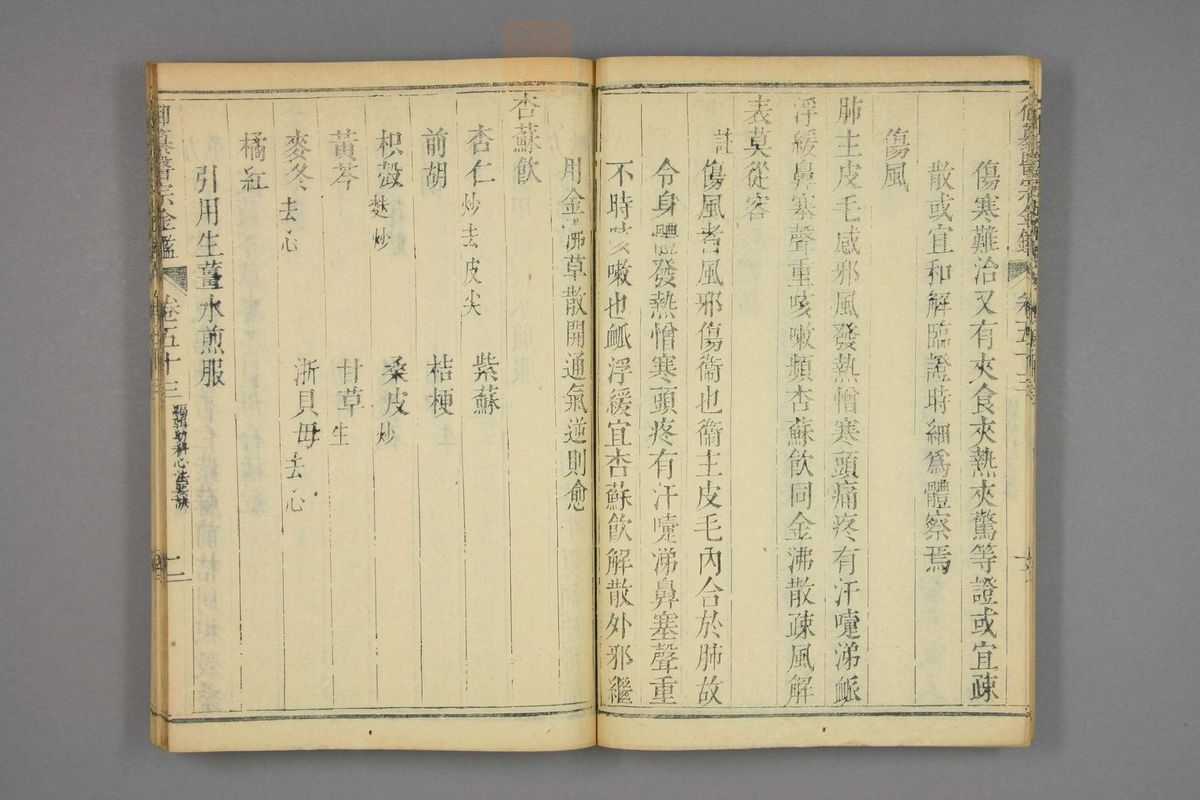 傷寒難治又有夾食夾熱夾驚等證或宜疎
散或宜和解臨證時細爲體察焉
傷風
肺主皮毛感邪風發熱憎寒頭痛疼有汗嚏涕䘑
浮緩鼻塞聲重咳嗽頻杏蘇飲同金沸散疎風解
表莫從容
註
傷風者風邪傷衞也衞主皮毛內合於肺故
令身體發熱憎寒頭疼有汗嚏涕鼻塞聲重
不時咳嗽也䘑浮緩宜杏蘇飲解散外邪繼
用金沸草散開通氣逆則愈
杏蘇飲
杏仁炒去皮尖 紫蘇
前胡 桔梗
枳殼麩炒 桑皮炒
黃芩 甘草生
麥冬去心 浙貝母去心
橘紅
引用生薑水煎服
御纂醫宗金鑑 卷五十三 編輯幼科心法要訣 二